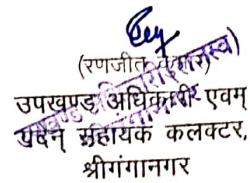 (रणजीत कुमार)
उपखण्ड अधिकारी एवम्
पदेन् सहायक कलक्टर,
श्रीगंगानगर